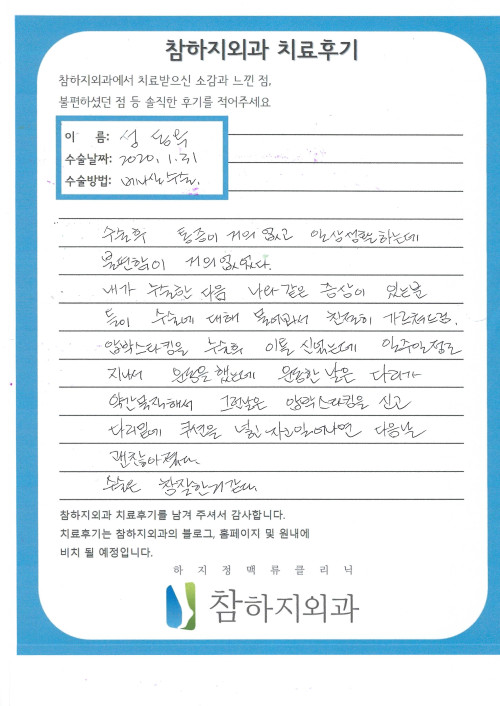 참하지외과 치료후기
참하지외과에서 치료받으신 소감과 느낀 점,
불편하셨던 점 등 솔직한 후기를 적어주세요
이 름: 성
수술날짜: 2020. 1. 31
수술방법: 베나실 수술.
수술후 통증이 거의 없고 일상생활하는데
불편함이 거의 없었다.
내가 수술한 다음 나와 같은 증상이 있는분
들이 수술에 대해 물어와서 친절히 가르쳐드림.
압박스타킹을 수술후 이틀 신었는데 일주일정도
지나서 운동을 했는데 운동한 날은 다리가
약간묵직해서 그런날은 압박스타킹을 신고
다리밑에 쿠션을 넣고 자고일어나면 다음날
괜찮아졌다.
수술은 참잘한거같다.
참하지외과 치료후기를 남겨 주셔서 감사합니다.
치료후기는 참하지외과의 블로그, 홈페이지 및 원내에
비치 될 예정입니다.
하지정맥류클리닉
참하지외과